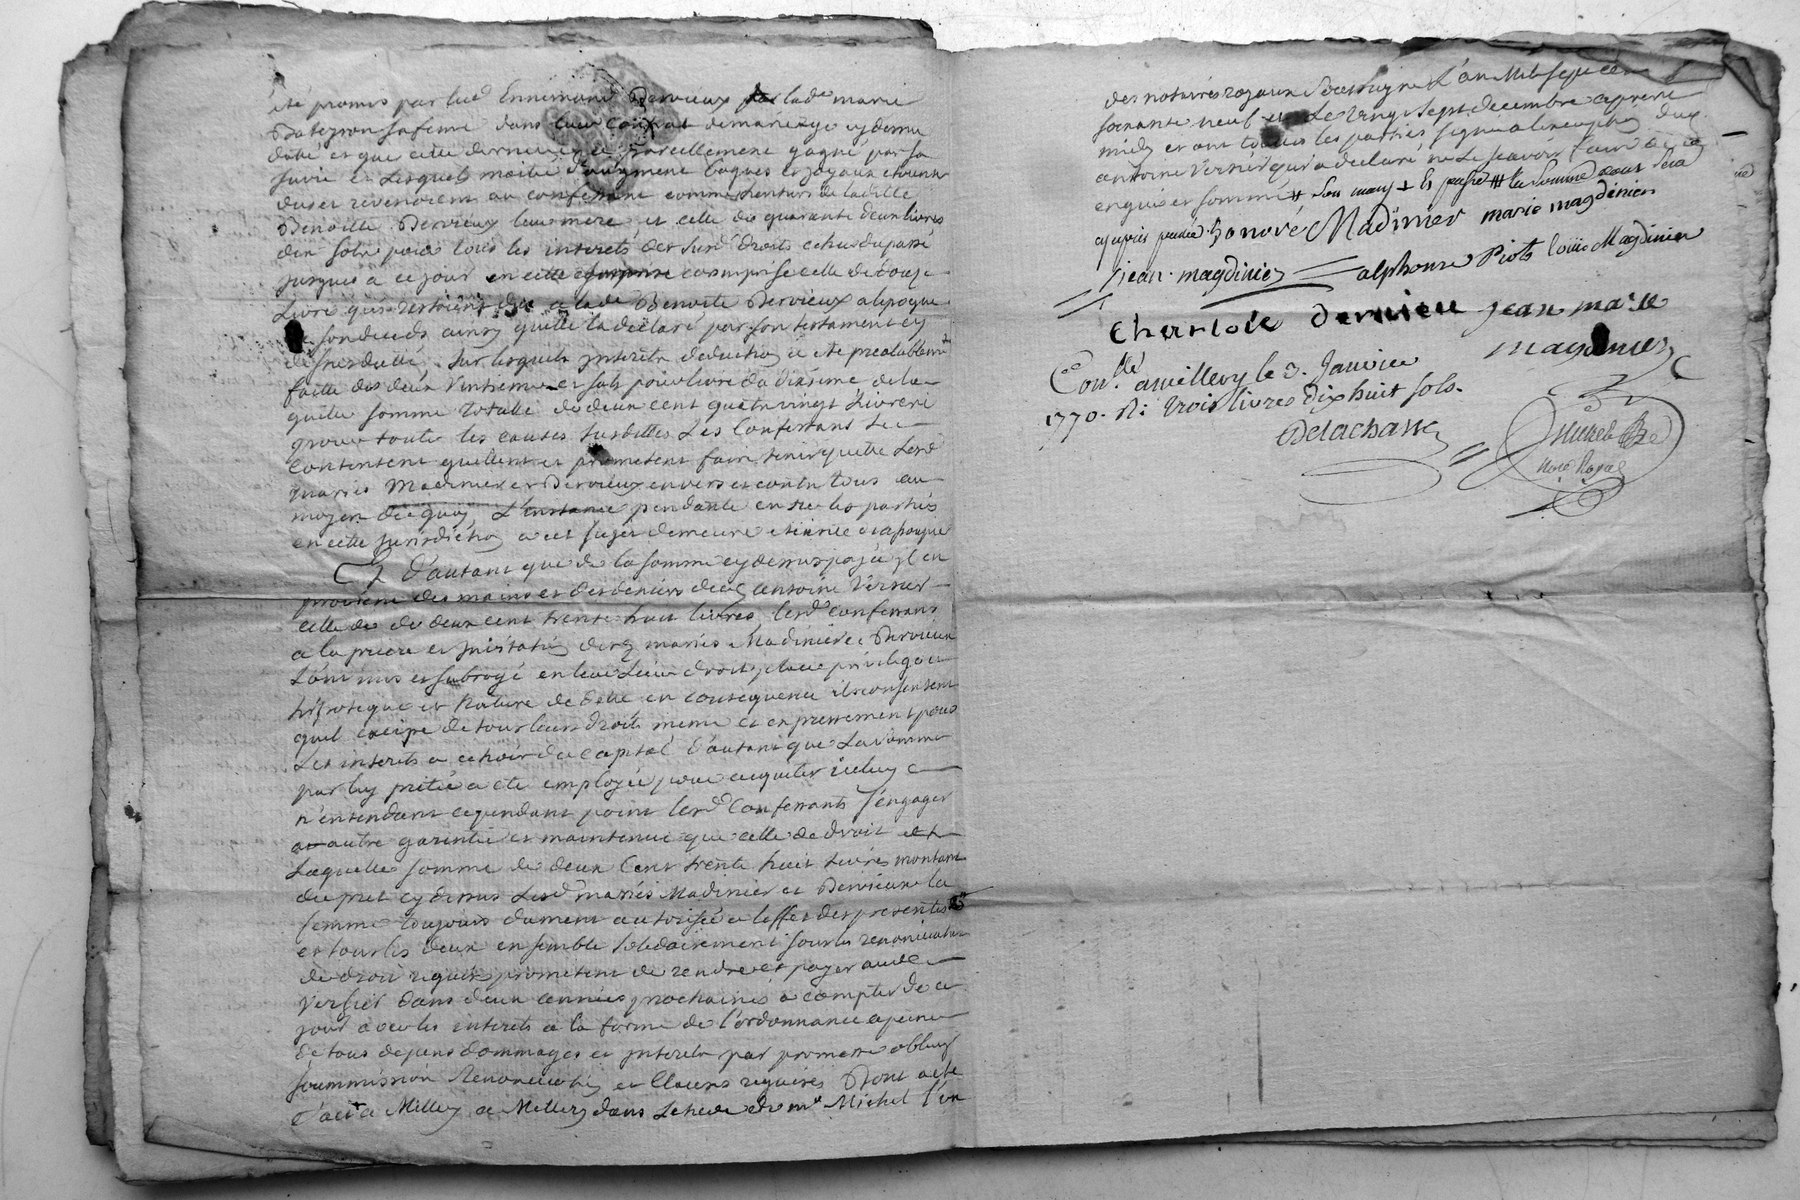 été promis par led Ennemond Dervieux par lade marie
Bateyron sa feme dans leur contrat de mariage cy dessus
daté et que cette derniere a pareillement gagné par sa
survie et lesquels moitié d'augment bagues et joyaux
revenoient au confessant comme heritiers de ladite
Benoitte Dervieux leur mere et celle de quarante deux livres
dix sols pour tous les interets des surd droits echus du passé
jusques a ce jour en cette comprise celle de douze
Livre qui restoient due a lade Benoite Dervieux a l'epoque
de son deceds ainsy qu'elle l'a declaré par son testament cy
dessus datté. Sur lesquels interets deduction a eté prealablemt
faitte des deux vintieme et sols pour livre du dixieme de la
quelle somme totalle de deux cent quatre vingt Livres et
pour toutte les causes susdittes Les Confessant se
contentent quittent et promettent faire tenir quitte lesd
mariés Madinier et Dervieux envers et contre tous au
moyen de quoy L'instance pendante entre les parties
en cette jurisdiction a cet sujet demeure eteinte et assoupie
Et D'autant que de la somme cy dessus payée il en
provient des mains et des deniers dud antoine Vernier
celle de de deux cent trente huit livres, lesd confessans
a la priere et requisition desd mariés Madinier et Dervieux
L'ont mis et subrogé en leur Lieu droits place privilege et
hipoteque et Nature de dette en consequence ils consentent
quil excipe de tous leurs droits meme et expressement pour
Les interets a echoir du capital d'autant que La somme
par luy pretée a eté employée pour acquiter iceluy
n'entendant cependant point lesd Confessants s'engager
a autre garentie et maintenue que celle de droit et
Laquelle somme de deux Cent trente huit Livres montant
du pret cy dessus Lesd mariés Madinier et Dervieux la
femme toujours dument autorisée a l'effet des presentes
et tous les deux ensemble solidairement sous les renonciation
de droit requises promettent de rendre et payer aud
Vernier dans deux années prochaines a compter de ce
jour avec les interets a la forme de l'ordonnance a peine
de tous depens dommages et interets par promesse oblig
soummission Renonciation et Clauses requises Dont acte
fait a Millery a Millery dans L'etude de me Michel l'un
des notaires royaux soussigné L'an Mil sept cent
soixante neuf et Le vingt sept decembre apres
midy et ont toutes les parties signé a l'exception dud
antoine Vernier qui a declaré ne Le scavoir faire de ce
enquis et sommé
honoré Madinier marie magdinier
jean magdinier alphonse Piot louis Magdinier
Charlote dervieu jean marie
magdinier
Conlé a millery le 3. Janvier
1770. R: trois livres dix huit sols.
Delachasse
Michel
Nore Royal